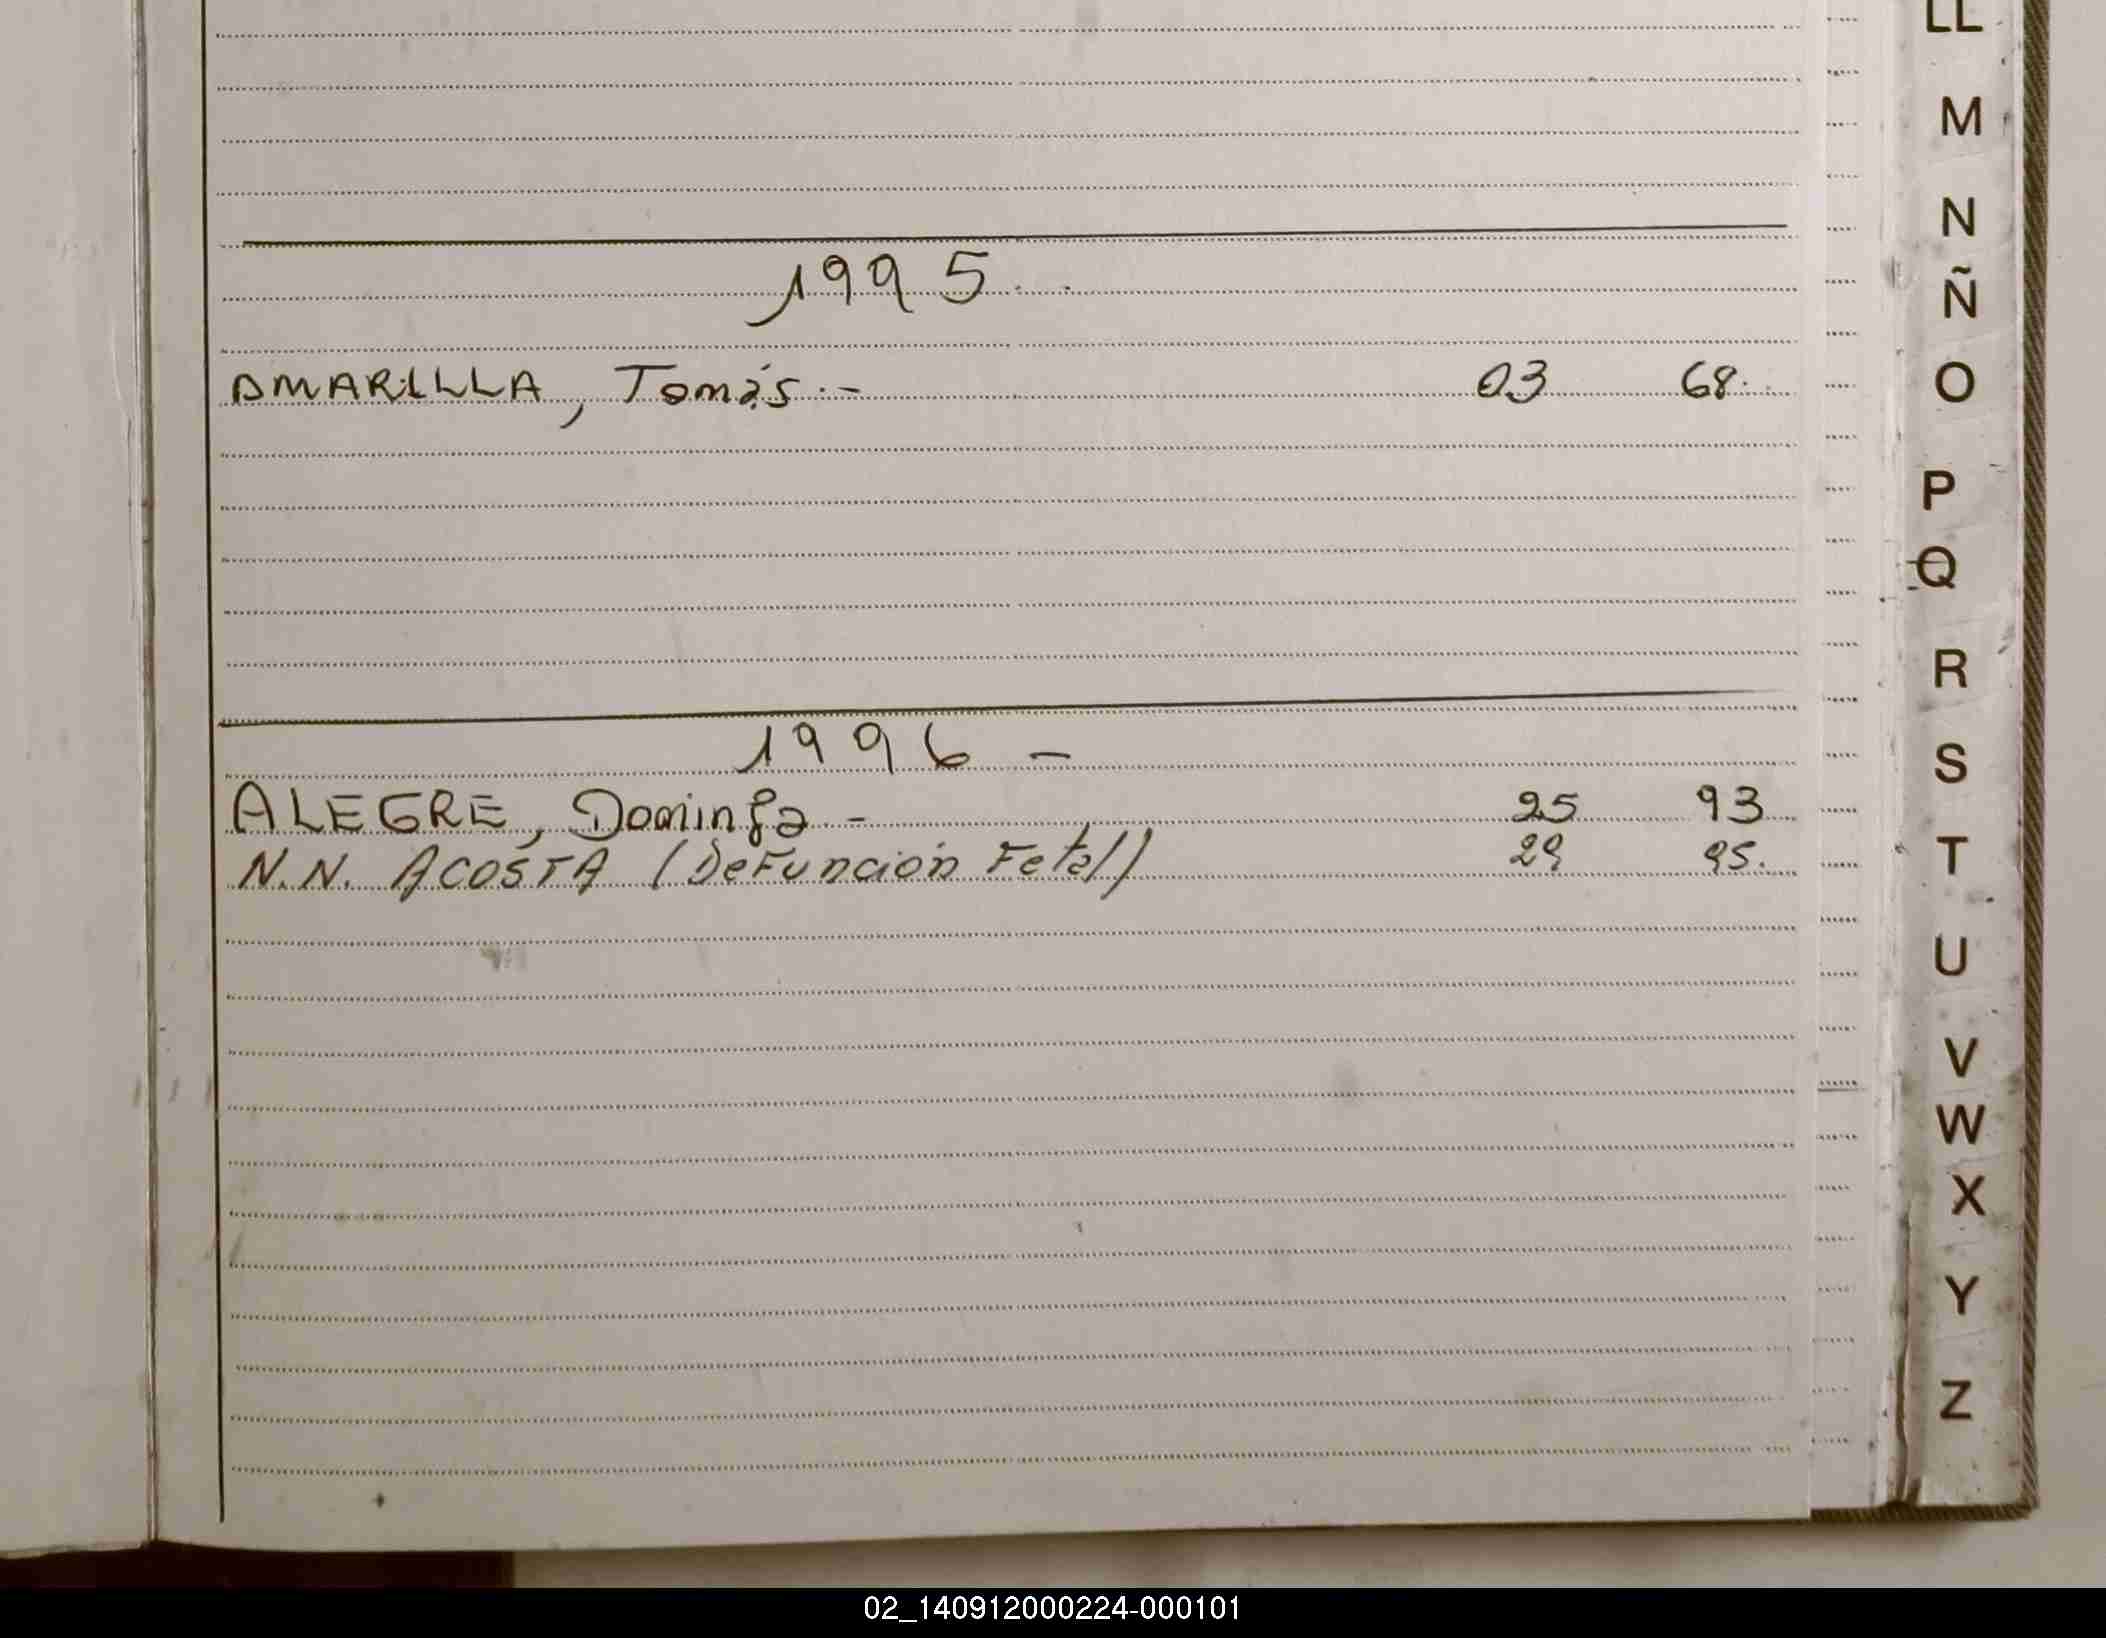 LL
M
N
Ñ
O
P
Q
R
S
T
U
V
W
X
Y
Z
1995.
AMARILLA, Tomás.- 03 68.
1996 -
ALEGRE, Dominga - 25 93
N.N. ACOSTA (Defunción Fetal) 29 95.
02_140912000224-000101